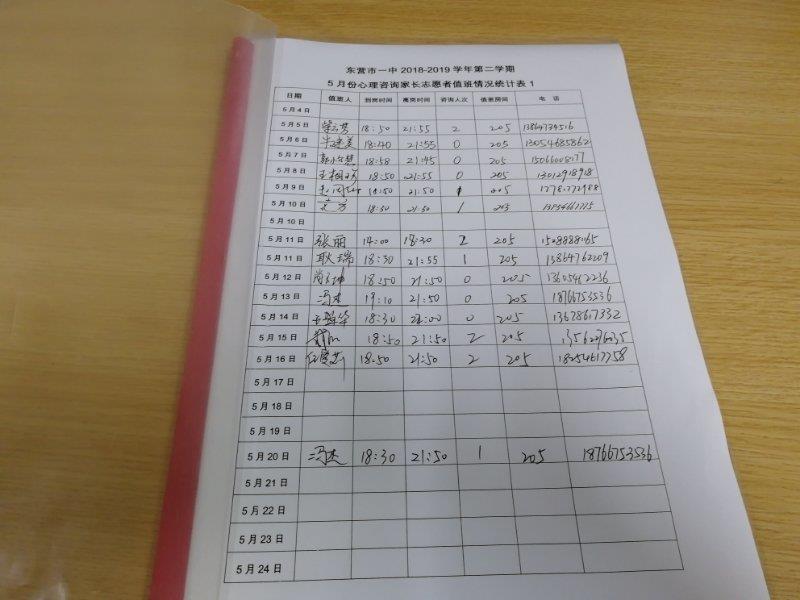 东营市一中 2018-2019 学年第二学期
5 月份心理咨询家长志愿者值班情况统计表 1
日期 值班人 到岗时间 离岗时间 咨询人次 值班房间 电 话
5 月 4 日
5 月 5 日 18:50 21:55 2 205 13864734516
5 月 6 日 18:40 21:55 0 205 13054685862
5 月 7 日 18:58 21:45 0 205
5 月 8 日 18:50 21:55 0 205 13012918918
5 月 9 日 18:50 21:50 1 205
5 月 10 日 18:30 21:30 1 203
5 月 10 日
5 月 11 日 张丽 14:00 18:30 2 205
5 月 11 日 耿瑞 18:30 21:55 1 205 13864762209
5 月 12 日 18:50 21:50 0 205 13605462236
5 月 13 日 冯杰 19:10 21:50 0 205 18766753536
5 月 14 日 18:30 22:00 0 205 13678617332
5 月 15 日 18:50 21:50 2 205
5 月 16 日 18:50 21:50 2 205 18254617758
5 月 17 日
5 月 18 日
5 月 19 日
5 月 20 日 冯杰 18:30 21:50 1 205 18766753536
5 月 21 日
5 月 22 日
5 月 23 日
5 月 24 日